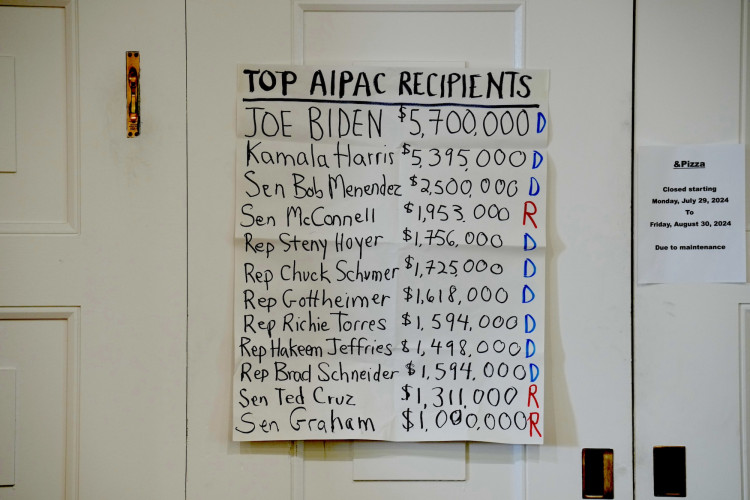 TOP AIPAC RECIPIENTS
JOE BIDEN $5,700,000 D
Kamala Harris $5,395,000 D
Sen Bob Menendez $2,500,000 D
Sen McConnell $1,953,000 R
Rep Steny Hoyer $1,756,000 D
Rep Chuck Schumer $1,725,000 D
Rep Gottheimer $1,618,000 D
Rep Richie Torres $1,594,000 D
Rep Hakeem Jeffries $1,498,000 D
Rep Brad Schneider $1,594,000 D
Sen Ted Cruz $1,311,000 R
Sen Graham $1,000,000 R
&Pizza
Closed starting
Monday, July 29, 2024
To
Friday, August 30, 2024
Due to maintenance